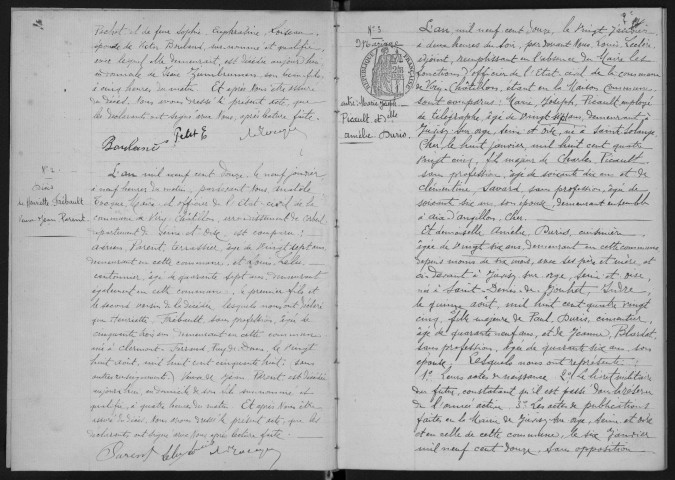 Pochet et de feue Sophie Euphrasine
épouse de Victor Boulard, sus nommé et qualifié,
avec lequel elle demeurait, est décédée aujourd'hui
au domicile de son beau-fils
à cinq heures du matin. Et après nous être assuré
du décès, Nous avons dressé le présent acte, que
les déclarants ont signé avec Nous, après lecture faite.
Boulard Petit E
N° 2
Décès
de Henriette Trébault
Veuve Jean Parent
L'an mil neuf cent douze, le neuf janvier
à neuf heures du matin, pardevant Nous Anatole
Maire et officier de l'Etat civil de la
commune de Viry-Châtillon, arrondissement de Corbeil
département de Seine et Oise, est comparu :
Adrien Parent, terrassier, âgé de vingt sept ans
demeurant en cette commune, et Louis
cantonnier, âgé de quarante sept ans, demeurant
également en cette commune, le premier fils et
le second voisin de la décédée, lesquels nous ont déclaré
que Henriette Trébault, sans profession, âgée de
cinquante trois ans, demeurant en cette commune
née à Clermont-Ferrand, Puy de Dôme, le vingt
huit août, mil huit cent cinquante huit ; (sans
autres renseignements) Veuve de Jean Parent est décédée
aujourd'hui, au domicile de son fils sus nommé et
qualifié, à quatre heures du matin. Et après Nous être
assuré du décès, Nous avons dressé le présent acte, que les
déclarants ont signé avec Nous après lecture faite.
Parent
N° 3
Mariage
RÉPUBLIQUE FRANÇAISE
entre Marie Joseph
Picault et Melle
Amélie Buris.
L'an mil neuf cent douze, le vingt janvier
à deux heures du soir, par devant Nous, Louis
adjoint, remplissant en l'absence du Maire les
fonctions d'officier de l'Etat civil de la commune
de Viry-Châtillon, étant en la Maison commune
sont comparus : Marie Joseph Picault employé
de télégraphe, âgé de vingt six ans, demeurant à
Juvisy sur Orge, Seine et Oise, né à Sainte Solange
Cher, le huit janvier, mil huit cent quatre
vingt cinq, fils majeur de Charles Picault
sans profession, âgé de soixante six ans et de
Clémentine Savard, sans profession, âgée de
soixante six ans, son épouse, demeurant ensemble
à Aix d'Angillon, Cher.
Et demoiselle Amélie Buris, cuisinière
âgée de vingt six ans, demeurant en cette commune
depuis moins de six mois, avec ses père et mère, et
ci-devant à Juvisy sur Orge, Seine et Oise,
née à Saint-Denis de Jouhet, Indre,
le quinze août, mil huit cent quatre vingt
cinq, fille majeure de Paul Buris, cuisinier
âgé de quarante neuf ans, et de Jeanne
sans profession, âgée de quarante six ans, son
épouse. Lesquels nous ont représenté :
1° Leurs actes de naissance 2° Le livret militaire
du futur, constatant qu'il est passé dans la réserve
de l'armée active. 3° Les actes de publications
faites en la Mairie de Juvisy sur Orge, Seine et Oise
et en celle de cette commune, le six janvier
mil neuf cent douze, sans opposition